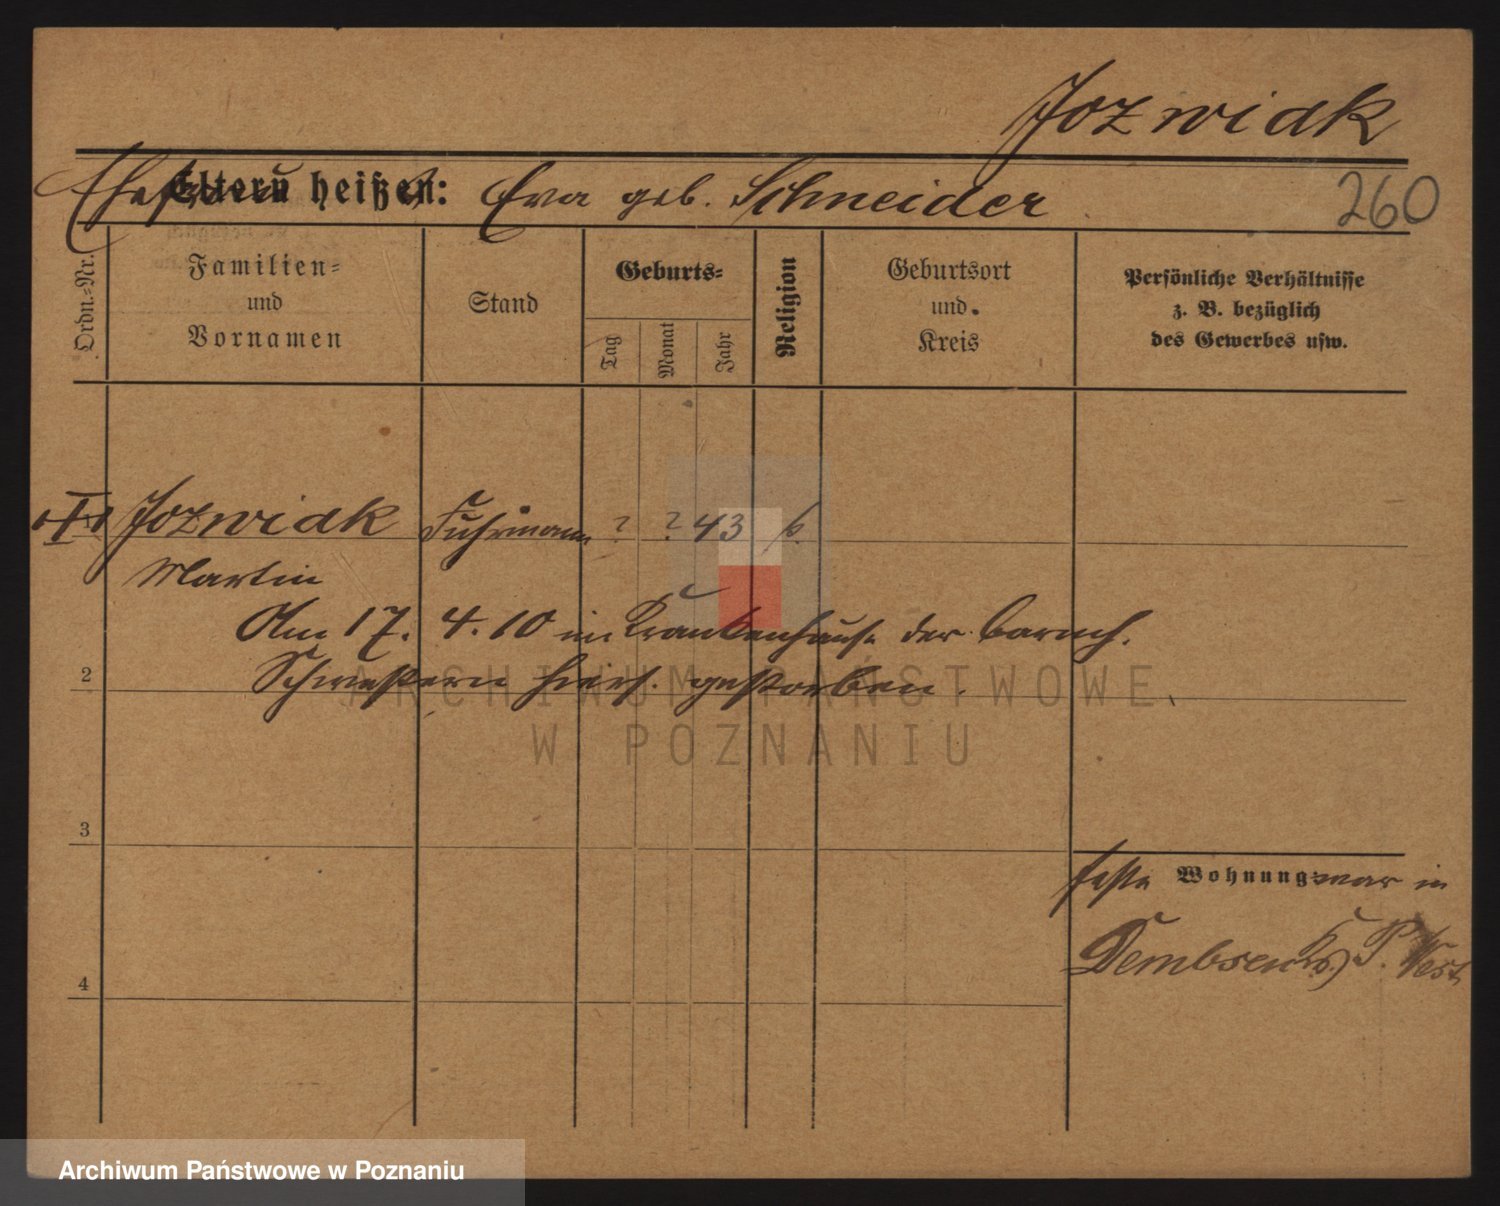 Jozwiak
Ehefrau Eltern heißen: Eva geb. Schneider
260
Ordn.-Nr.
Familien-
und
Vornamen
Stand
Geburts-
Tag
Monat
Jahr
Religion
Geburtsort
und
Kreis
Persönliche Verhältnisse
z. B. bezüglich
des Gewerbes usw.
Jozwiak Fuhrmann ? ? 43 k.
Martin
Am 17. 4. 10 im Krankenhause der barmh.
2
Schwestern hiers. gestorben.
3
feste Wohnung war in
Dembsen P. West
4
ARCHIWUM PAŃSTWOWE
W POZNANIU
Archiwum Państwowe w Poznaniu